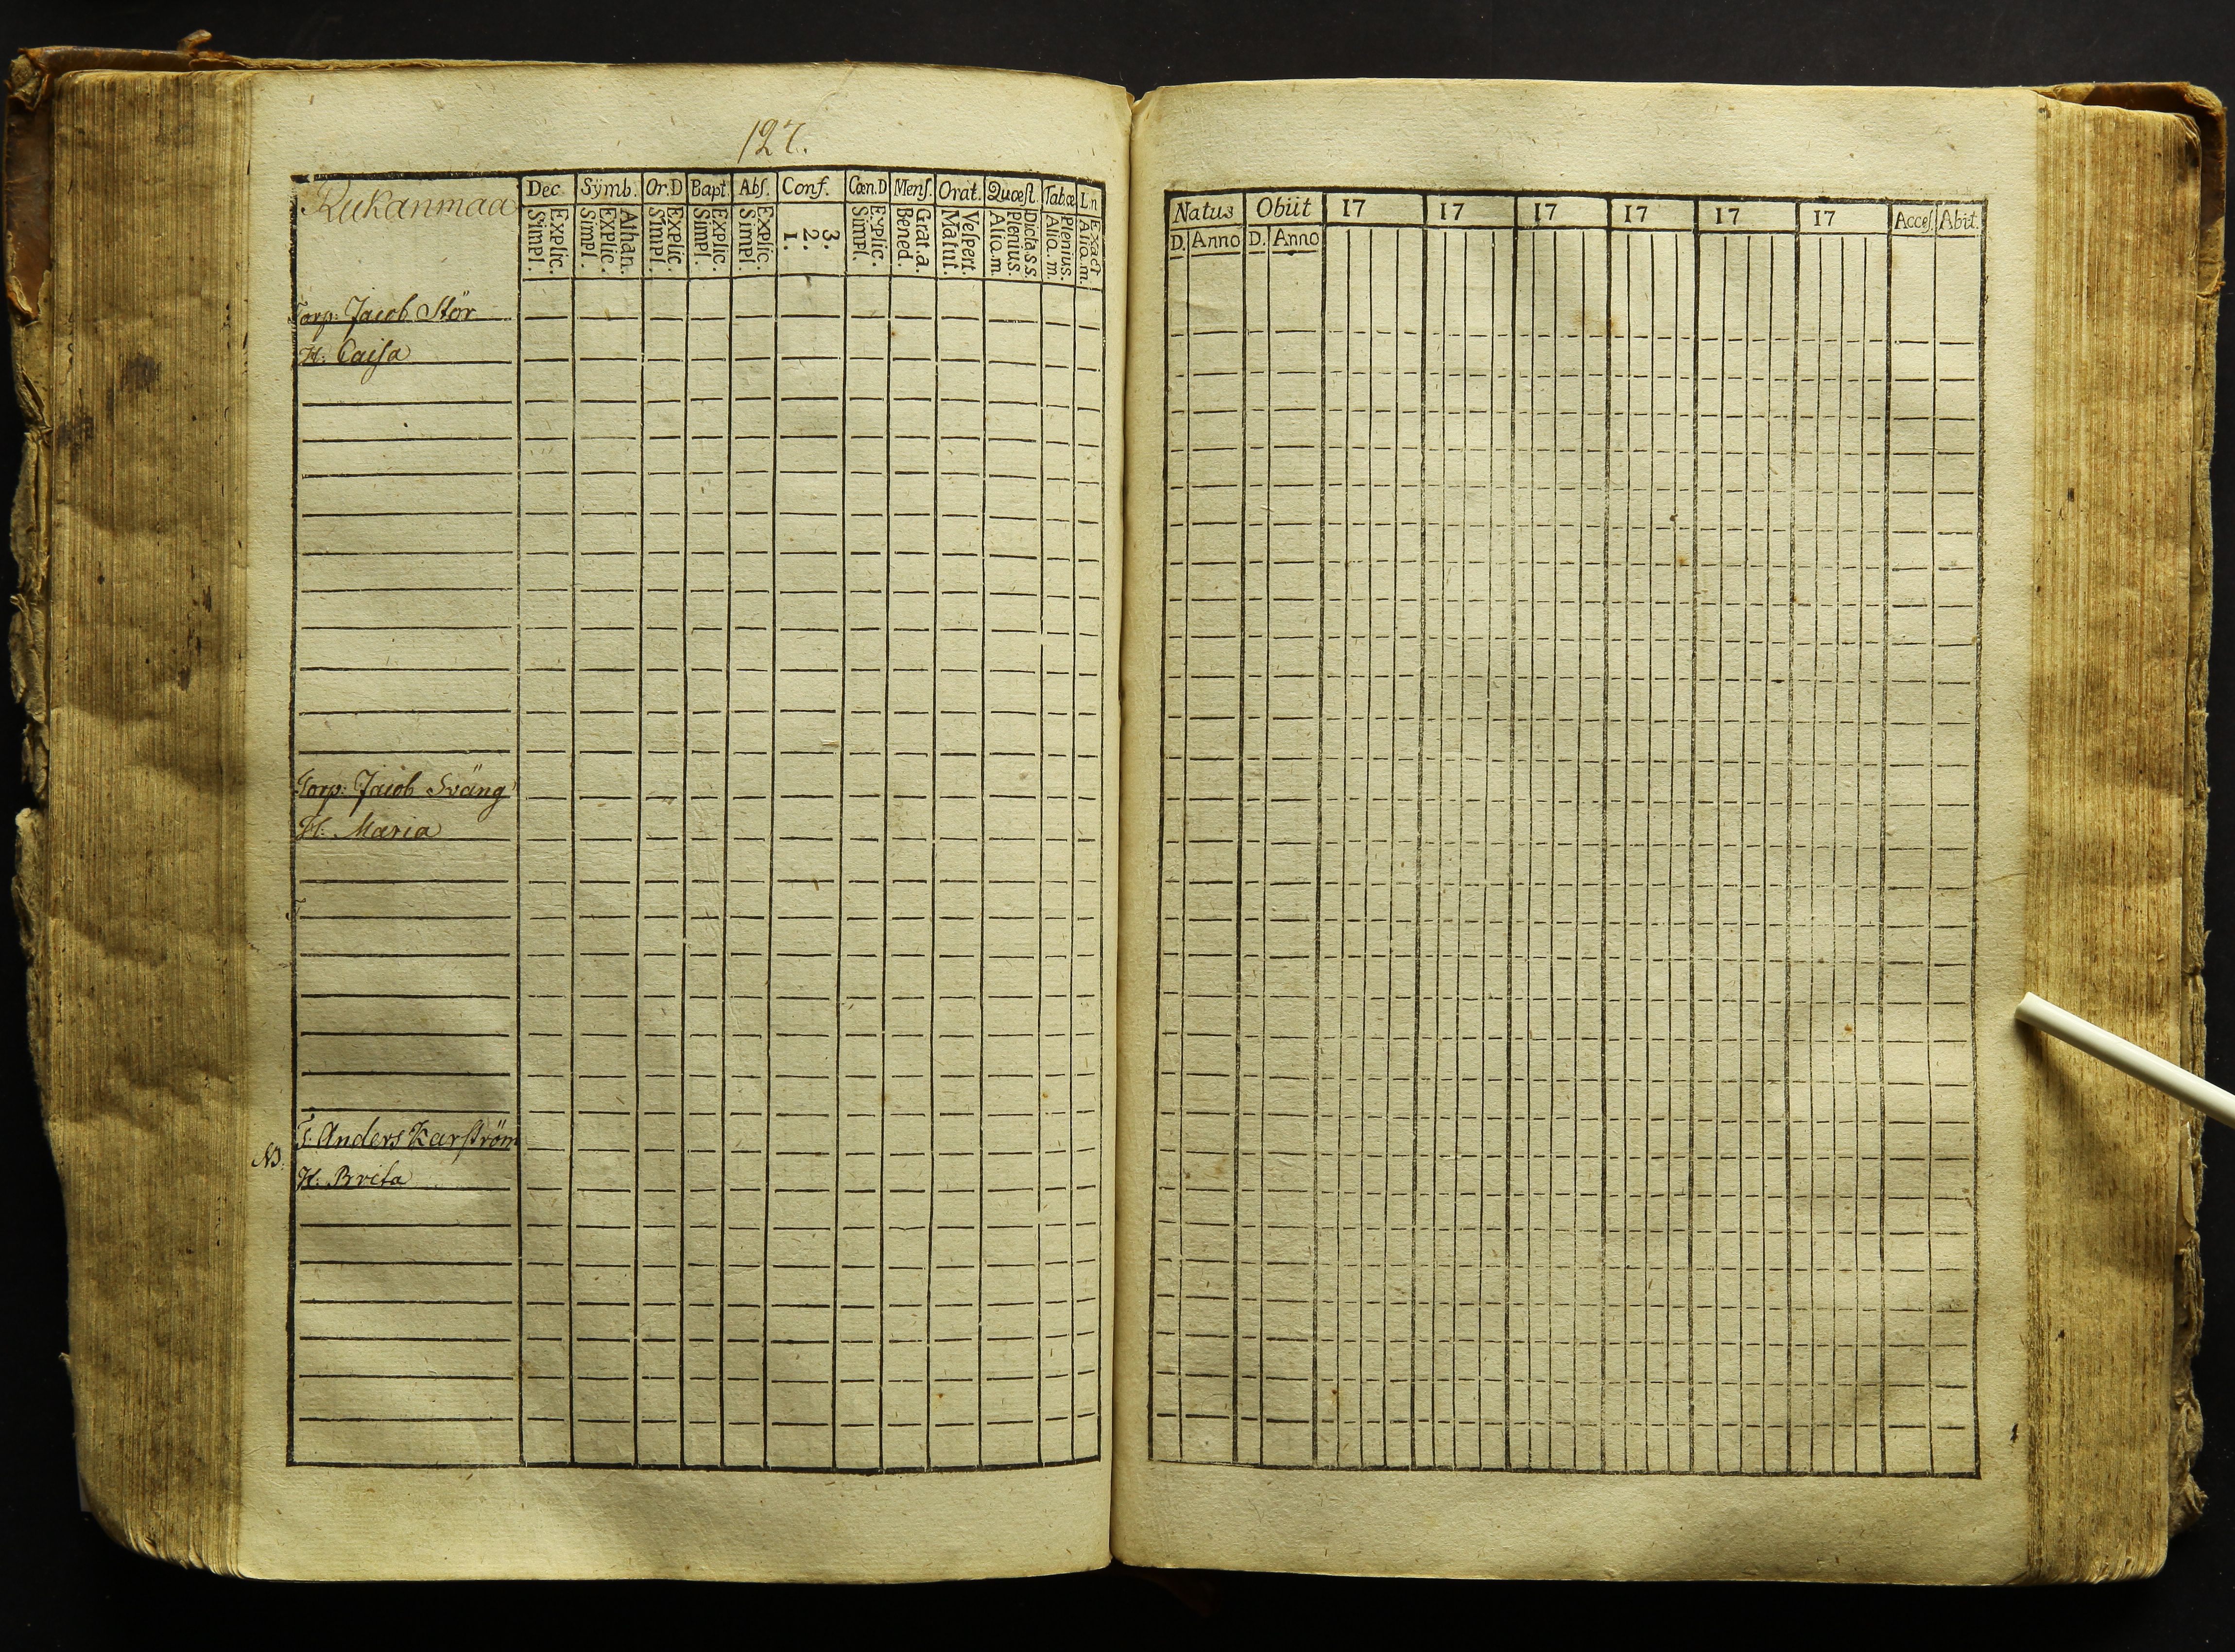 127.
Rukanmaa
Dec. Sÿmb. Or.D Bapt. Abs. Conf. Cœn.D Mens. Orat. Quæst. Tabæ L.n
Simpl. Explic. Simpl. Explic. Athan. Simpl. Explic. Simpl. Explic. Simpl. Explic. 1. 2. 3. Simpl. Explic. Bened. Grat.a. Matut. Vespert. Aliq.m. Plenius. Dicta s s. Aliq.m. Plenius. Aliq.m. Exact
Torp: Jacob Stör
H: Caisa
Torp: Jacob Sväng
H: Maria
T
T: Anders Karström
NB.
H: Brita
Natus Obiit 17 17 17 17 17 17 Acces. Abit.
D. Anno D. Anno